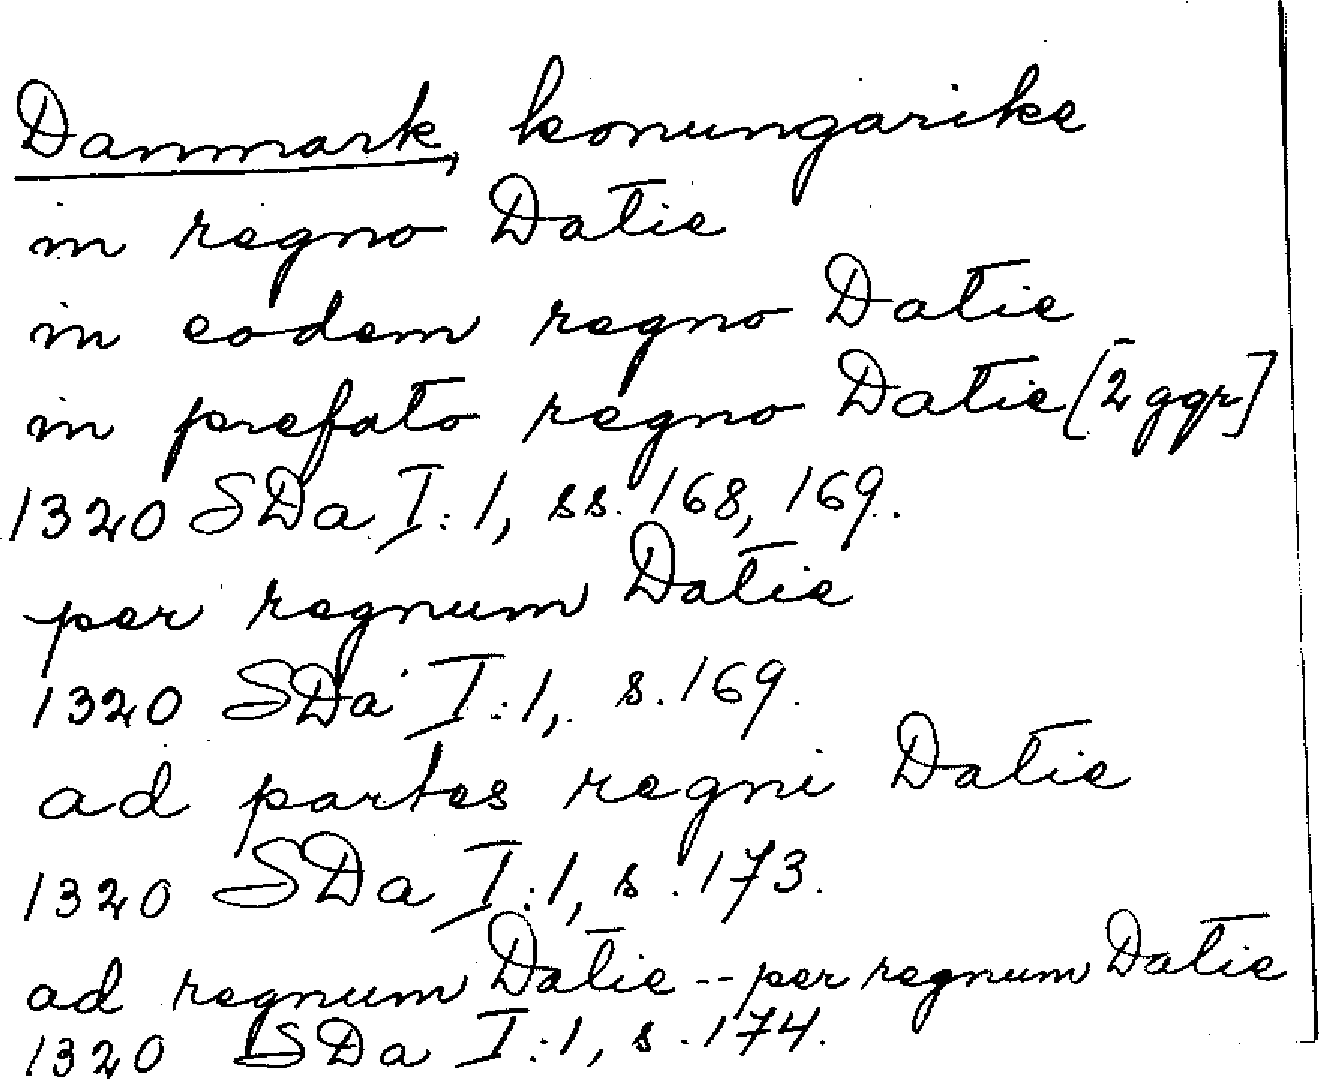 Danmark, konungarike
in regno Datie
in eodem regno Datie
in prefato regno Datie [2 ggr]
1320 SDa I:1, ss. 168, 169.
per regnum Datie
1320 SDa I:1, s. 169.
ad partes regni Datie
1320 SDa I:1, s. 173.
ad regnum Datie -- per regnum Datie
1320 SDa I:1, s. 174.